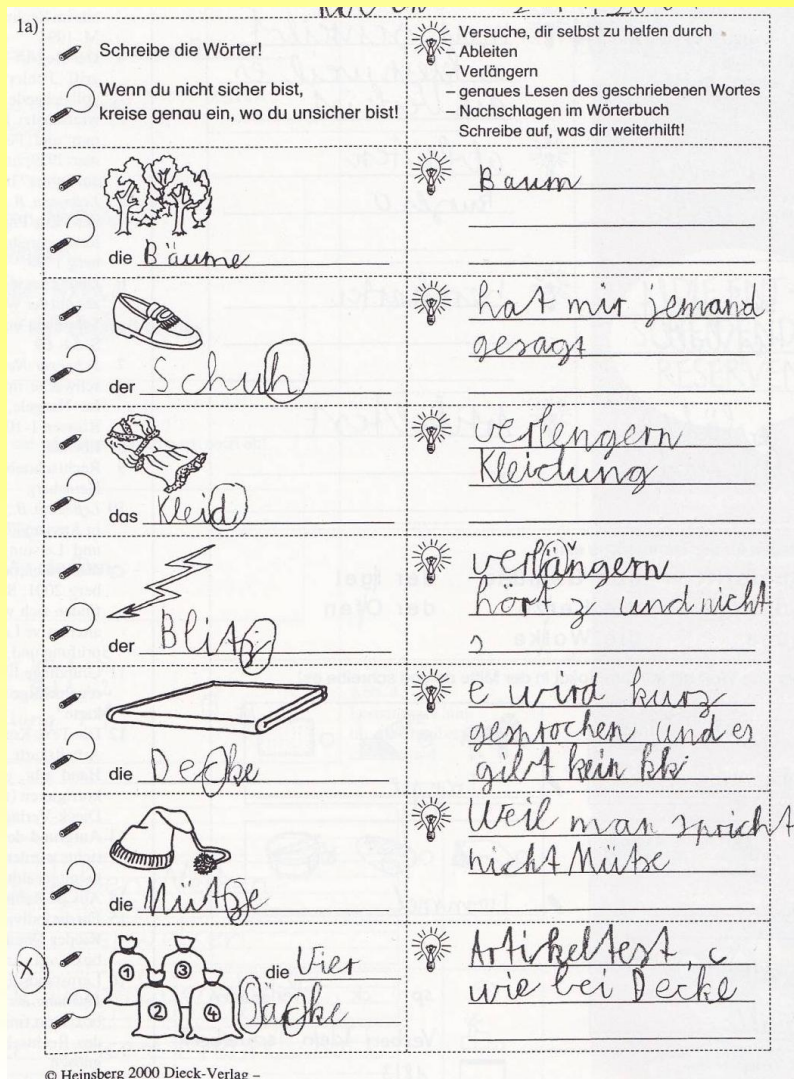 1a)
Schreibe die Wörter!
Wenn du nicht sicher bist,
kreise genau ein, wo du unsicher bist!
Versuche, dir selbst zu helfen durch
– Ableiten
– Verlängern
– genaues Lesen des geschriebenen Wortes
– Nachschlagen im Wörterbuch
Schreibe auf, was dir weiterhilft!
die Bäume
Baum
der Schuh
hat mir jemand
gesagt
das Kleid
verlengern
Kleidung
der Blitz
verlängern
hört z und nicht
s
die Decke
e wird kurz
gesprochen und es
gibt kein kk
die Mütze
Weil man spricht
nicht Müße
X
1 3
2 4
die Vier
Säcke
Artikeltest, c
wie bei Decke
© Heinsberg 2000 Dieck-Verlag –